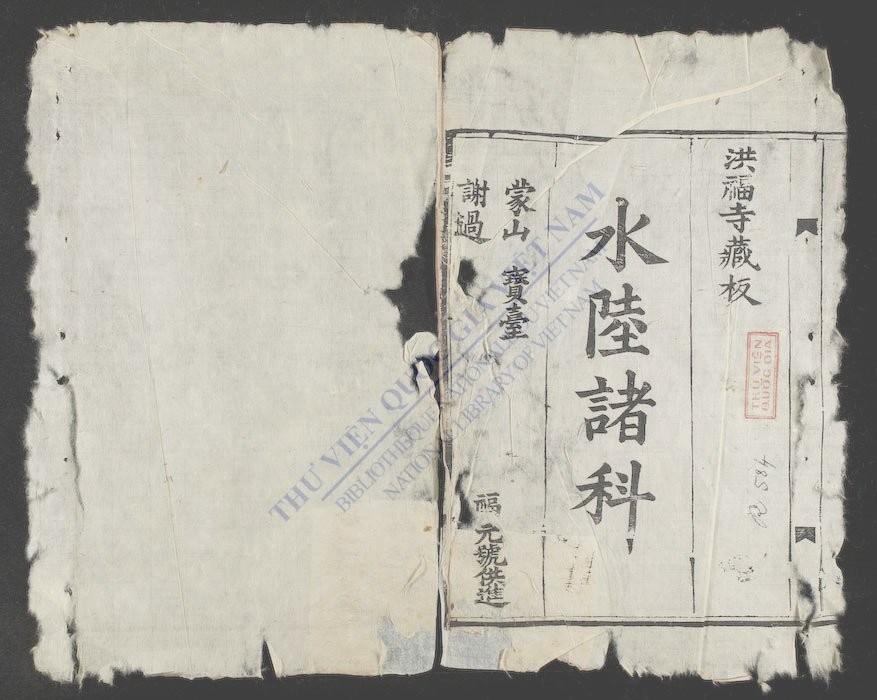 洪福寺藏板
水陸諸科
蒙山 寶臺
謝過
福 元號供進
THƯ VIỆN
QUỐC GIA
R 584
THƯ VIỆN QUỐC GIA VIỆT NAM
BIBLIOTHÈQUE NATIONALE DU VIETNAM
NATIONAL LIBRARY OF VIETNAM